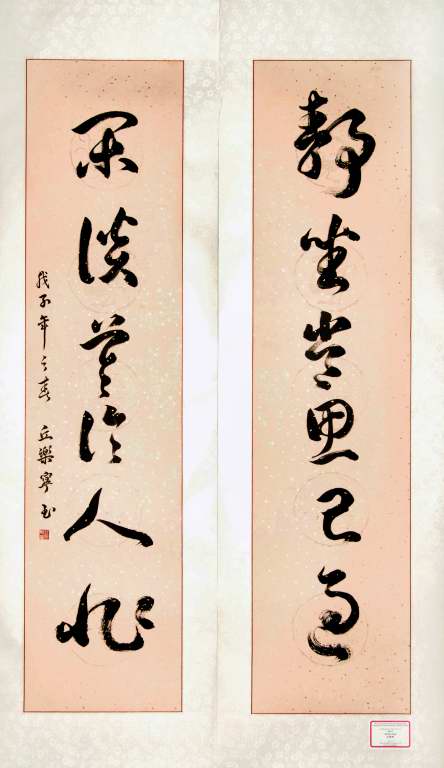 靜坐常思己過
閑談莫論人非
戊子年之春 丘樂寧書